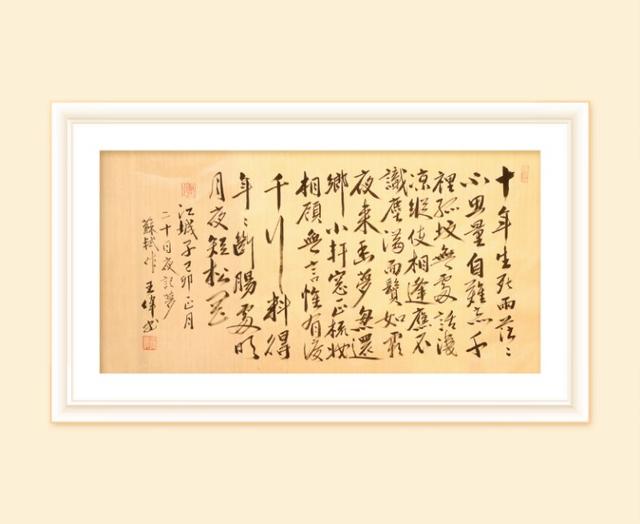 十年生死兩茫々
不思量自難忘千
裡孤墳無處話淒
涼縱使相逢應不
識塵滿面鬢如霜
夜来幽夢忽還
鄉小軒窗正梳妝
相顧無言惟有淚
千行料得
年々斷腸處明
月夜短松岡
江城子乙卯正月
二十日夜記夢
蘇軾作 王偉書